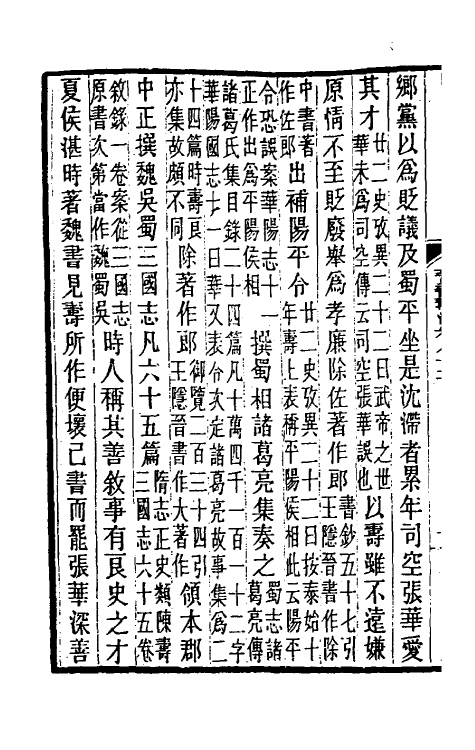 鄉黨以爲貶議及蜀平坐是沈滯者累年司空張華愛
其才
廿二史攷異二十二曰武帝之世
華未爲司空傳云司空張華誤也
以壽雖不遠嫌
原情不至貶廢舉爲孝廉除佐著作郎
書鈔五十七引
王隱晉書作除
中書著
作佐郎
出補陽平令
廿二史攷異二十二曰按泰始十
年壽上表稱平陽侯相此云陽平
令恐誤案華陽志十一
正作出爲平陽侯相
撰蜀相諸葛亮集奏之
蜀志諸
葛亮傳
諸葛氏集目錄二十四篇凡十萬四千一百一十二字
華陽國志十一曰華又表令次定諸葛亮故事集爲二
十四篇時壽良
亦集故頗不同
除著作郎
御覽二百三十四引
王隱晉書作大著作
領本郡
中正撰魏吳蜀三國志凡六十五篇
隋志正史類陳壽
三國志六十五卷
敘錄一卷案從三國志
原書次第當作魏蜀吳
時人稱其善敘事有良史之才
夏侯湛時著魏書見壽所作便壞己書而罷張華深善